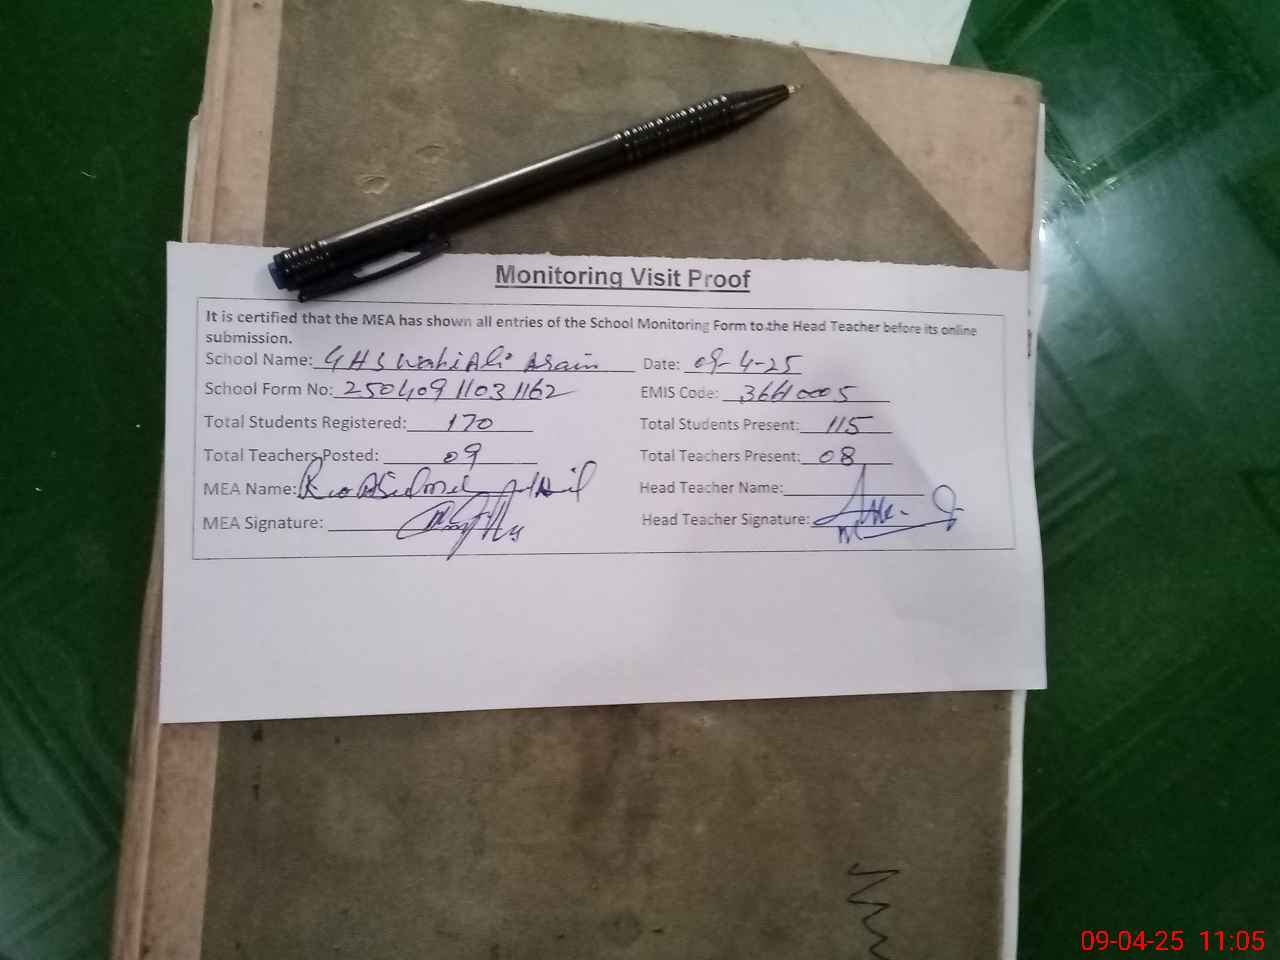 Monitoring Visit Proof
It is certified that the MEA has shown all entries of the School Monitoring Form to the Head Teacher before its online
submission.
School Name: GHS Wahi Ali Arain Date: 09-4-25
School Form No: 25040911031162 EMIS Code:
Total Students Registered: 170 Total Students Present: 115
Total Teachers Posted: 09 Total Teachers Present: 08
MEA Name: Head Teacher Name:
MEA Signature: Head Teacher Signature:
09-04-25 11:05